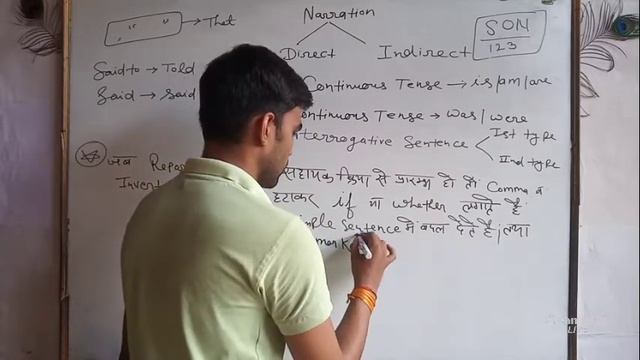 Narration
" " → That
SON
123
Direct Indirect
Said to → Told Continuous Tense → is/am/are
Said → Said Continuous Tense → was/were
Interrogative Sentence
Ist type
IInd type
जब Repo सहायक क्रिया से प्रारम्भ हो तो Comma
Invert हटाकर if या whether लगाते है
Sentence में बदल देते है, तथा